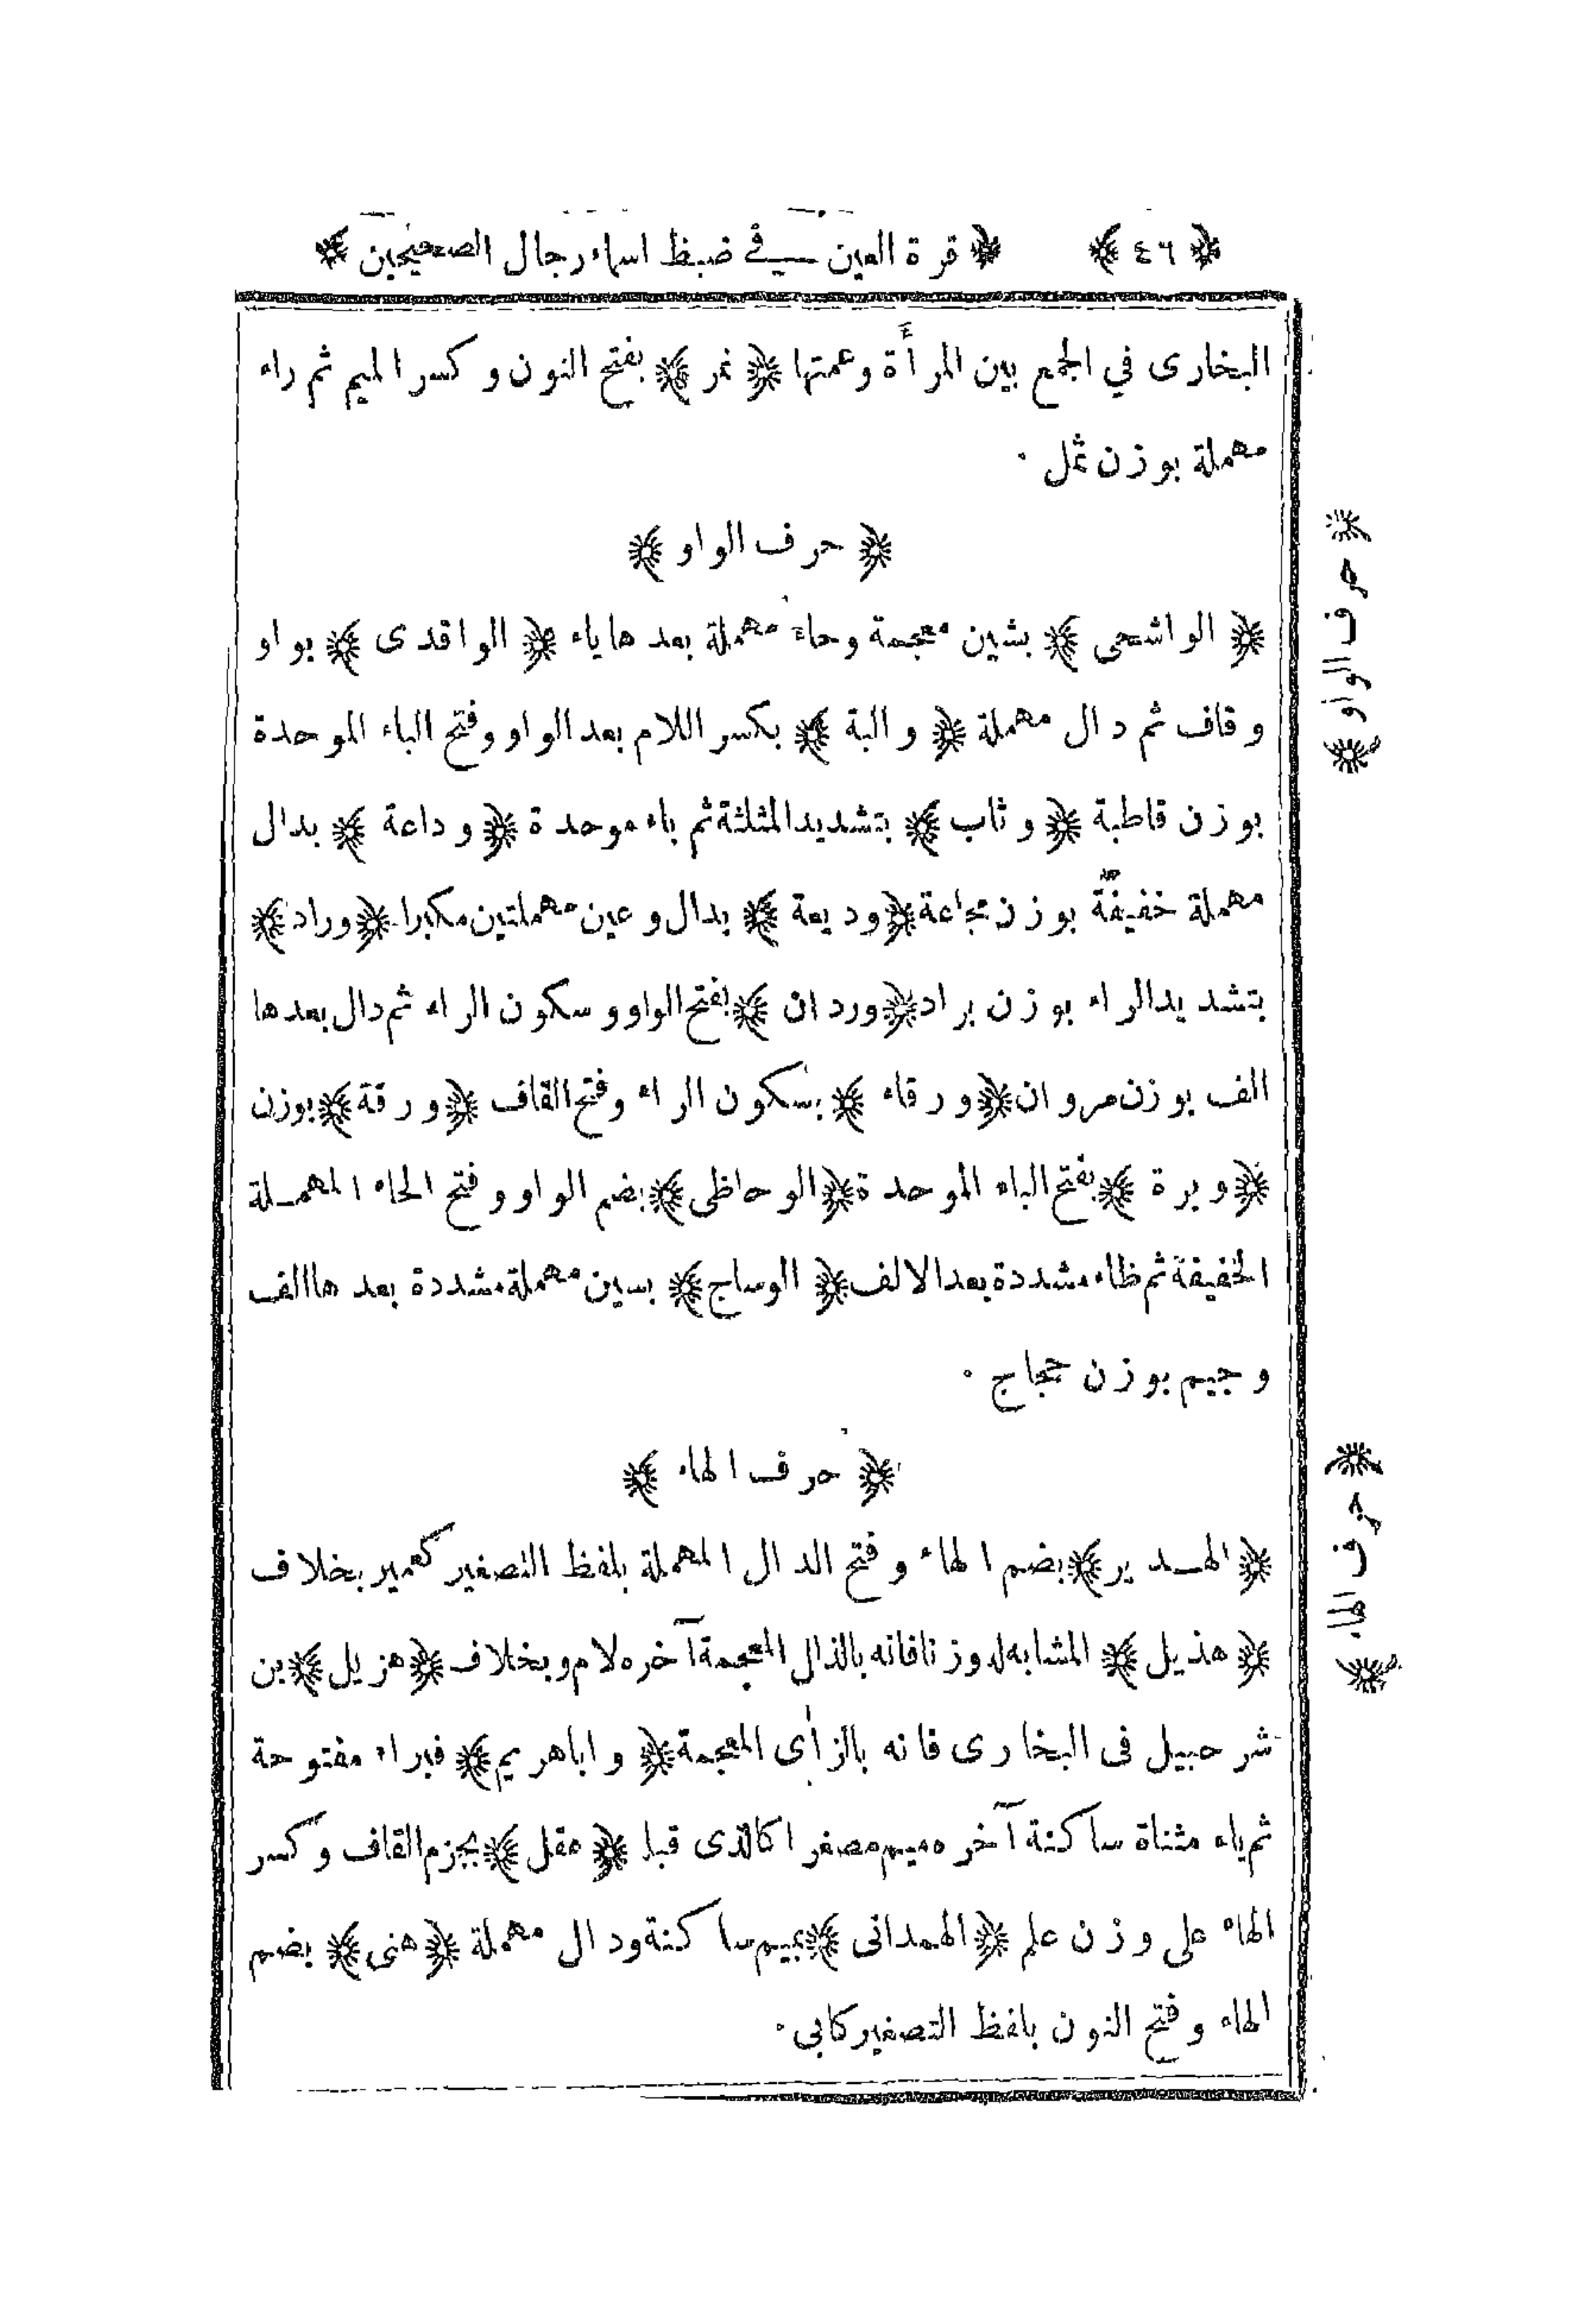 ﴿ ٤٦ ﴾ ﴿ قرة العين في ضبط اسماء رجال الصحيحين ﴾
البخارى في الجمع بين المرأة وعمتها ﴿ نمر ﴾ بفتح النون وكسر الميم ثم راء
مهملة بوزن ثمل ·
﴿ حرف الواو ﴾
﴿ حرف الواو ﴾
﴿ الواشحى ﴾ بشين معجمة وحاء مهملة بعدها ياء ﴿ الواقدى ﴾ بواو
وقاف ثم دال مهملة ﴿ والبة ﴾ بكسر اللام بعد الواو وفتح الباء الموحدة
بوزن قاطبة ﴿ وثاب ﴾ بتشديد المثلثة ثم باء موحدة ﴿ وداعة ﴾ بدال
مهملة خفيفة بوزن مجاعة ﴿ وديعة ﴾ بدال وعين مهملتين مكبرا ﴿ وراد ﴾
بتشديد الراء بوزن براد ﴿ وردان ﴾ بفتح الواو وسكون الراء ثم دال بعدها
الف بوزن مروان ﴿ ورقاء ﴾ بسكون الراء وفتح القاف ﴿ ورقة ﴾ بوزن
﴿ وبرة ﴾ بفتح الباء الموحدة ﴿ الوحاظى ﴾ بضم الواو وفتح الحاء المهملة
الخفيفة ثم ظاء مشددة بعد الالف ﴿ الوساج ﴾ بسين مهملة مشددة بعدها الف
وجيم بوزن حجاج ·
﴿ حرف الهاء ﴾
﴿ حرف الهاء ﴾
﴿ الهدير ﴾ بضم الهاء وفتح الدال المهملة بلفظ التصغير كعمير بخلاف
﴿ هذيل ﴾ المشابه له وزنا فانه بالذال المعجمة آخره لام وبخلاف ﴿ هزيل ﴾ بن
شرحبيل فى البخارى فانه بالزاى المعجمة ﴿ واباهريم ﴾ فبراء مفتوحة
ثم ياء مثناة ساكنة آخره ميم مصغرا كالذى قبل ﴿ هقل ﴾ بجزم القاف وكسر
الهاء على وزن علم ﴿ الهمدانى ﴾ بميم ساكنة ودال مهملة ﴿ هنى ﴾ بضم
الهاء وفتح النون بلفظ التصغير كابى ·